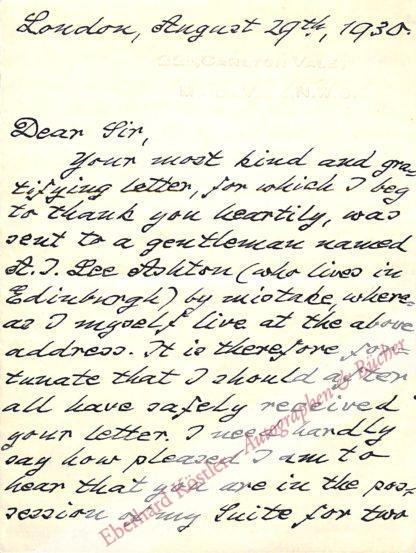 London, August 29th, 1930.
CARLTON VALE,
N.W.6.
Dear Sir,
Your most kind and gra=
tifying letter, for which I beg
to thank you heartily, was
sent to a gentleman named
A.J. Lee Ashton (who lives in
Edinburgh) by mistake, where=
as I myself live at the above
address. It is therefore for=
tunate that I should after
all have safely received
your letter. I need hardly
say how pleased I am to
hear that you are in the pos=
session of my Suite for two
Eberhard Köstler Autographen & Bücher